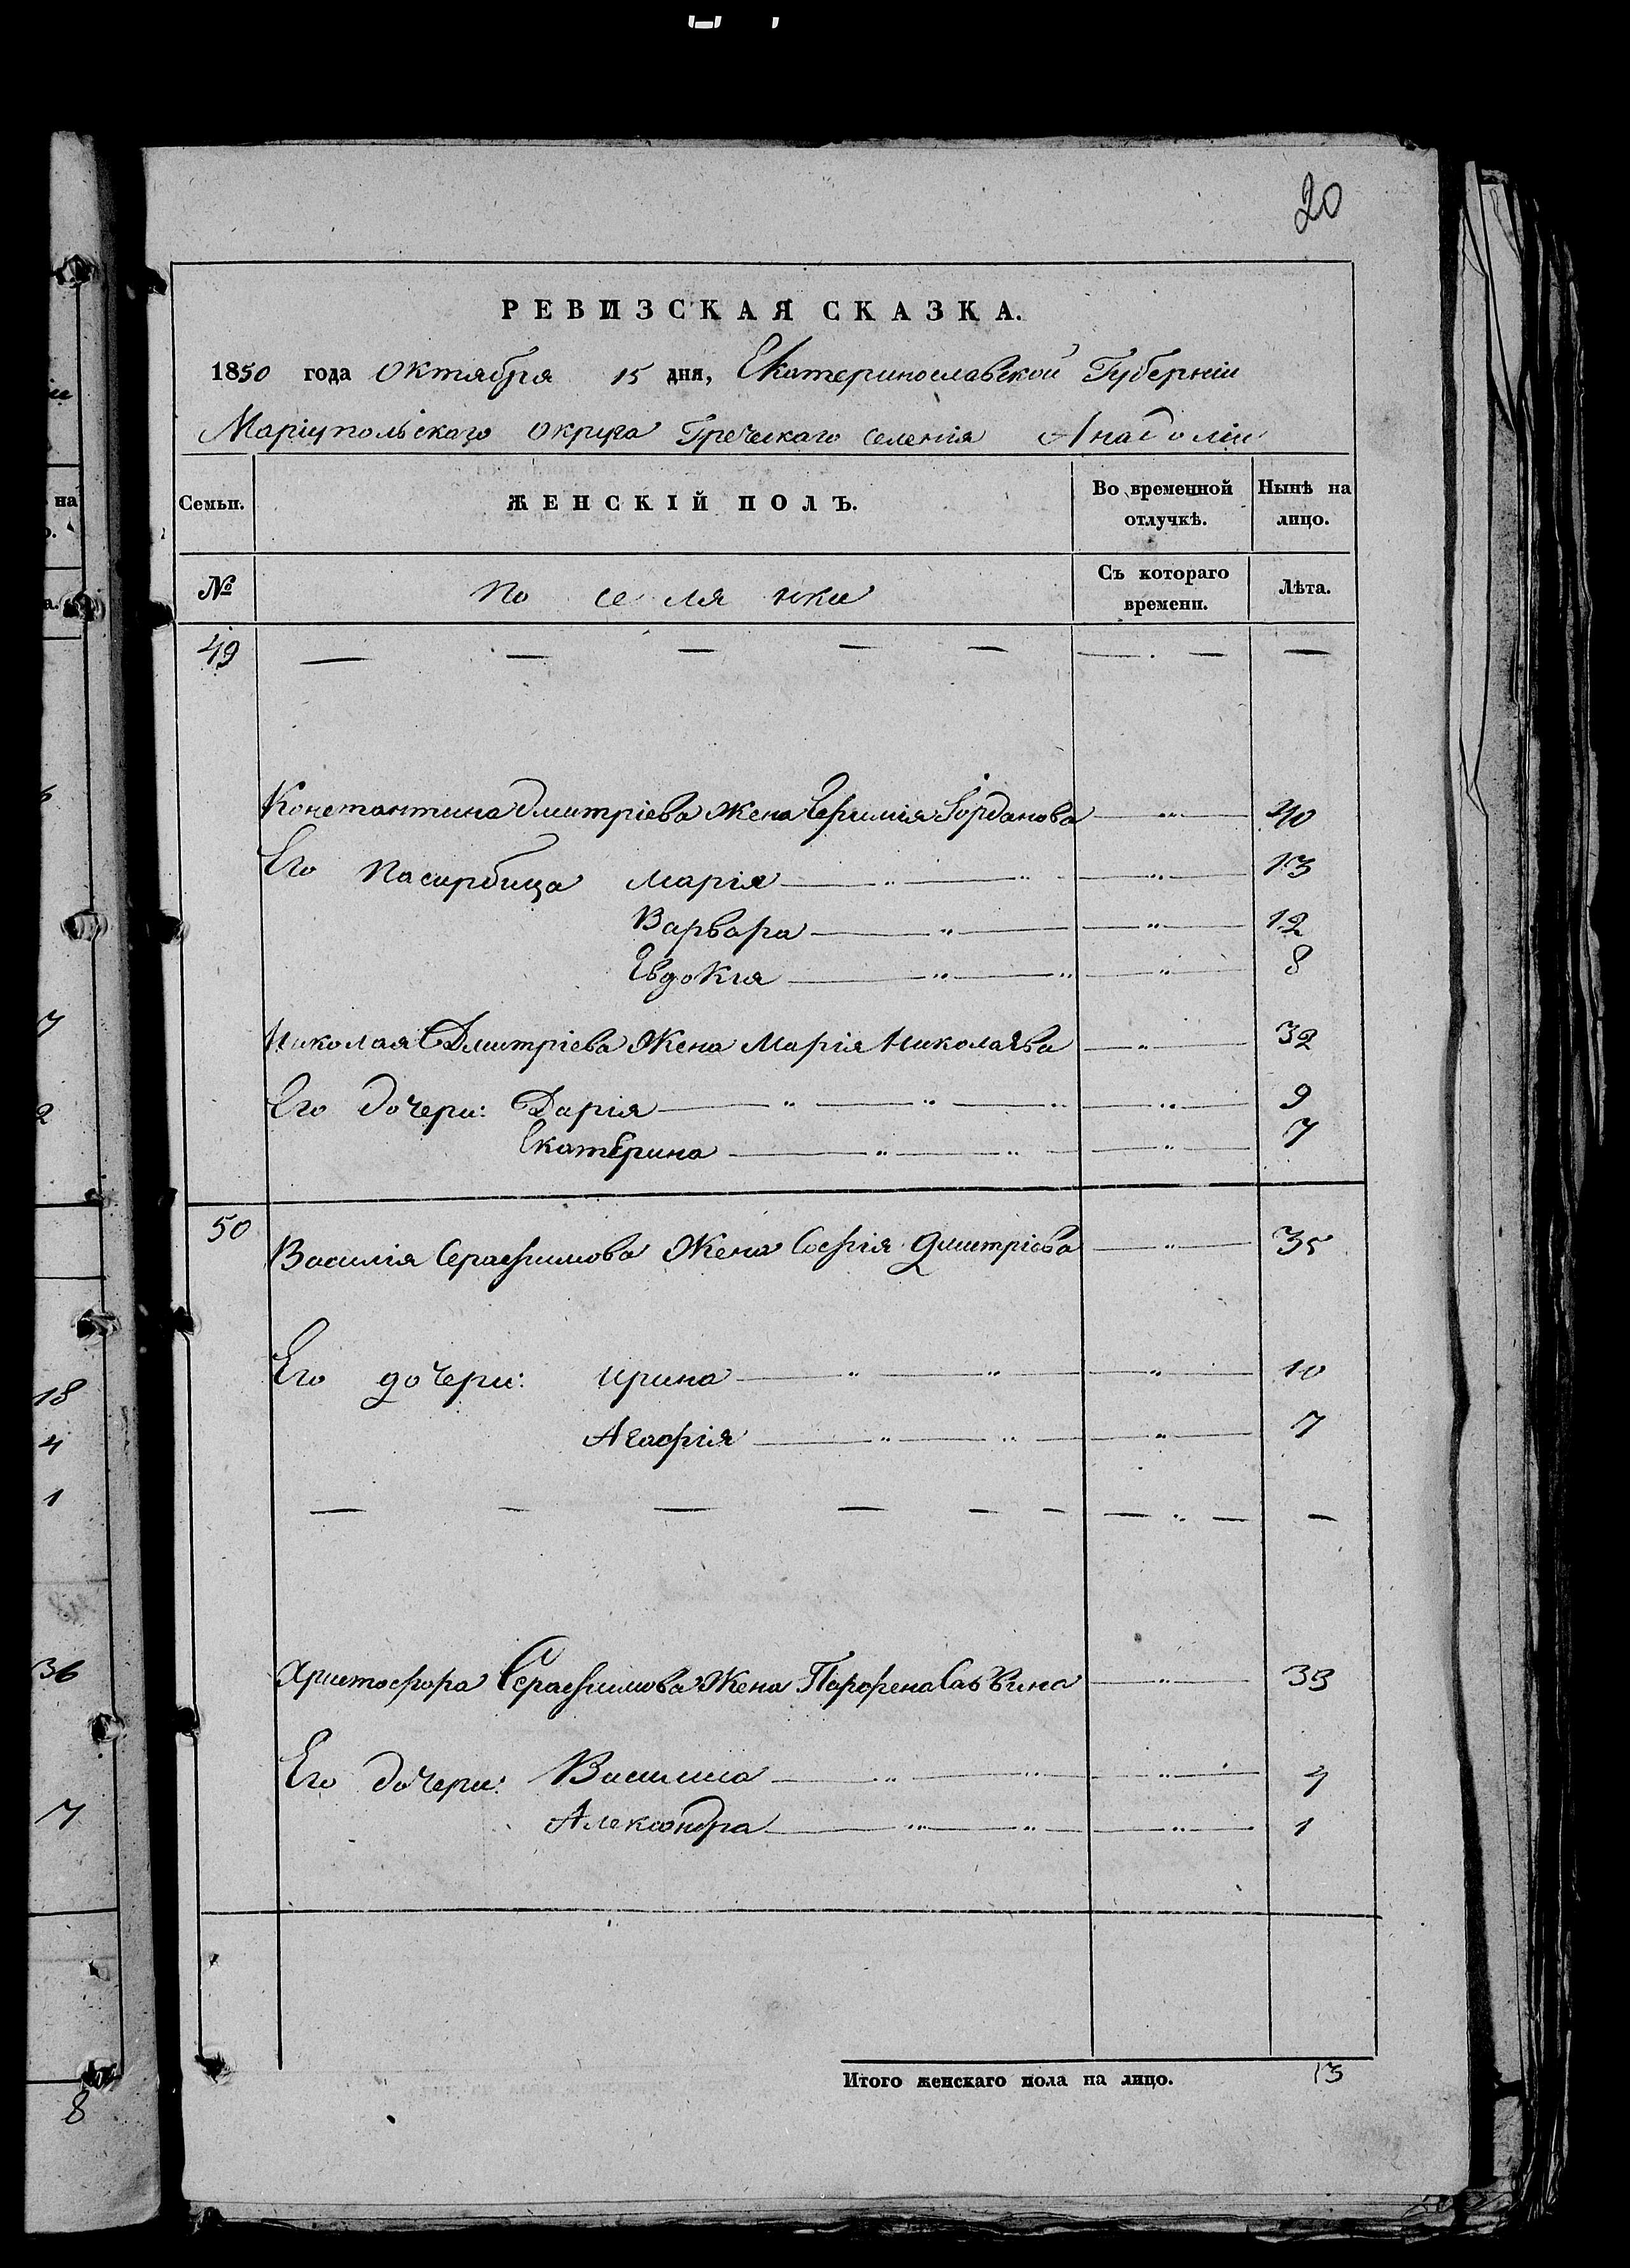 20
РЕВИЗСКАЯ СКАЗКА.
1850 года Октября 15 дня, Екатеринославской Губерніи
Маріупольскаго Округа Греческаго селенія Анадоліи
Семьи. ЖЕНСКІЙ ПОЛЪ. Во временной отлучкѣ. Нынѣ на лицо.
№ Поселянки Съ котораго времени. Лѣта.
49 — — — — — — — —
Константина Дмитріева Жена Ефимія Іорданова — „ — 40
Его Пасирбица Марія — „ — „ — „ — 13
Варвара — „ — — „ — 12
Евдокія — „ — „ — „ — 8
Николая Дмитріева Жена Марія Николаева — „ — 32
Его дочери: Дарія — „ — „ — „ — „ — 9
Екатерина — „ — „ — — „ — 7
50
Василія Серафимова Жена Софія Дмитріева — „ — 35
Его дочери: Ирина — „ — „ — — „ — 10
Агафія — „ — „ — — „ — 7
— — — — — — — „ — —
Христофора Серафимова Жена Парфена Саввина — „ — 33
Его дочери: Василиса — „ — „ — — „ — 4
Александра — „ — „ — — „ — 1
Итого женскаго пола на лицо. 13
на
7
2
18
4
1
36
7
8